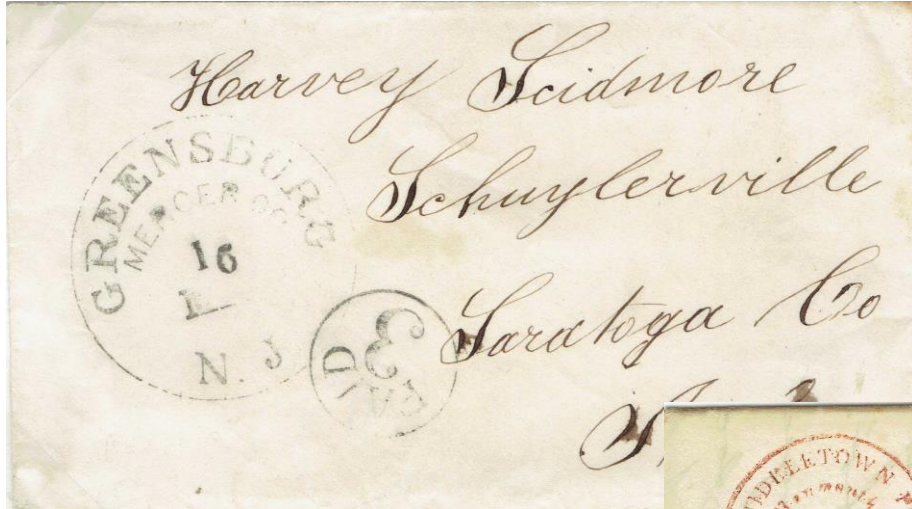 Harvey Scidmore
Schuylerville
Saratoga Co
GREENSBURG
MERCER CO.
16
N. J
PAID
3